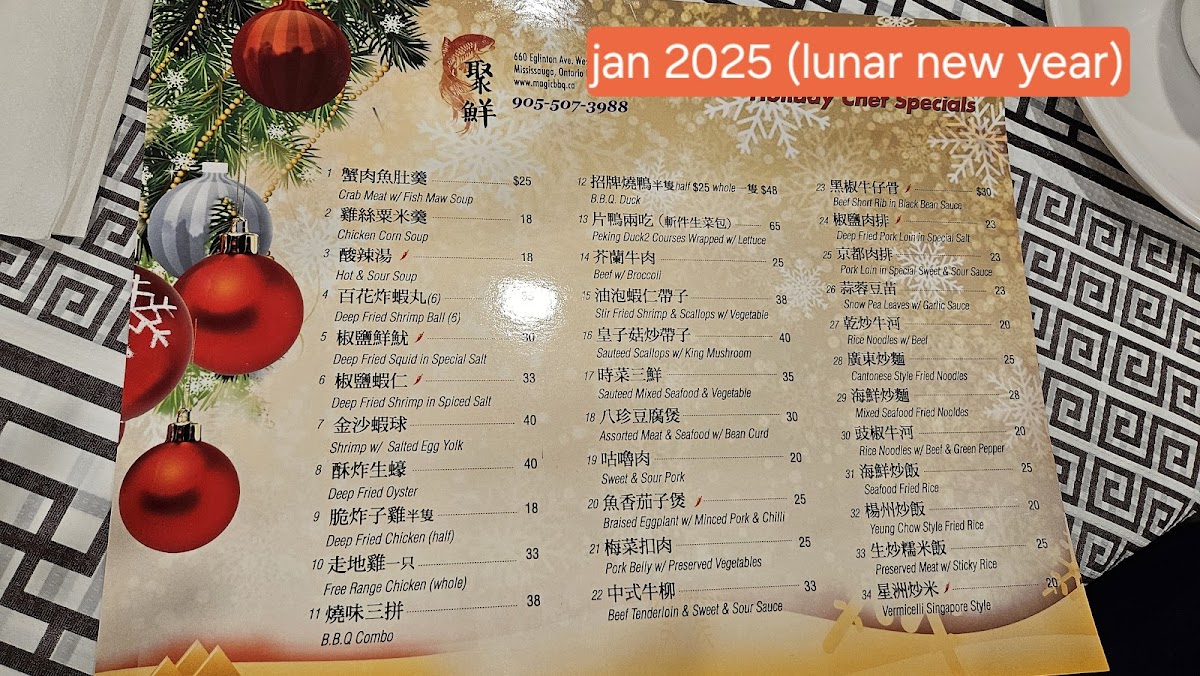 聚鮮
660 Eglinton Ave. We
Mississauga, Ontario
www.magicbbq.co
905-507-3988
jan 2025 (lunar new year)
Holiday Chef Specials
1 蟹肉魚肚羹 $25
Crab Meat w/ Fish Maw Soup
2 雞絲粟米羹 18
Chicken Corn Soup
3 酸辣湯 18
Hot & Sour Soup
4 百花炸蝦丸(6)
Deep Fried Shrimp Ball (6)
5 椒鹽鮮魷 30
Deep Fried Squid in Special Salt
6 椒鹽蝦仁 33
Deep Fried Shrimp in Spiced Salt
7 金沙蝦球 40
Shrimp w/ Salted Egg Yolk
8 酥炸生蠔 40
Deep Fried Oyster
9 脆炸子雞半隻 18
Deep Fried Chicken (half)
10 走地雞一只 33
Free Range Chicken (whole)
11 燒味三拼 38
B.B.Q Combo
12 招牌燒鴨半隻half $25 whole 一隻 $48
B.B.Q. Duck
13 片鴨兩吃（斬件生菜包） 65
Peking Duck2 Courses Wrapped w/ Lettuce
14 芥蘭牛肉 25
Beef w/ Broccoli
15 油泡蝦仁帶子 38
Stir Fried Shrimp & Scallops w/ Vegetable
16 皇子菇炒帶子 40
Sauteed Scallops w/ King Mushroom
17 時菜三鮮 35
Sauteed Mixed Seafood & Vegetable
18 八珍豆腐煲 30
Assorted Meat & Seafood w/ Bean Curd
19 咕嚕肉 20
Sweet & Sour Pork
20 魚香茄子煲 25
Braised Eggplant w/ Minced Pork & Chilli
21 梅菜扣肉 25
Pork Belly w/ Preserved Vegetables
22 中式牛柳 33
Beef Tenderloin & Sweet & Sour Sauce
23 黑椒牛仔骨 $30
Beef Short Rib in Black Bean Sauce
24 椒鹽肉排 23
Deep Fried Pork Loin in Special Salt
25 京都肉排 23
Pork Loin in Special Sweet & Sour Sauce
26 蒜蓉豆苗 23
Snow Pea Leaves w/ Garlic Sauce
27 乾炒牛河 20
Rice Noodles w/ Beef
28 廣東炒麵 25
Cantonese Style Fried Noodles
29 海鮮炒麵 28
Mixed Seafood Fried Nooldes
30 豉椒牛河 20
Rice Noodles w/ Beef & Green Pepper
31 海鮮炒飯 25
Seafood Fried Rice
32 楊州炒飯 20
Yeung Chow Style Fried Rice
33 生炒糯米飯 25
Preserved Meat w/ Sticky Rice
34 星洲炒米 20
Vermicelli Singapore Style